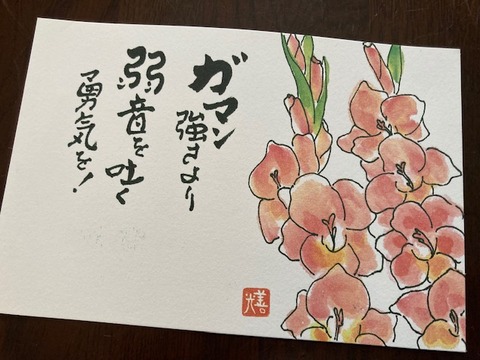 ガマン
強さより
弱音を
吐く
勇気を！